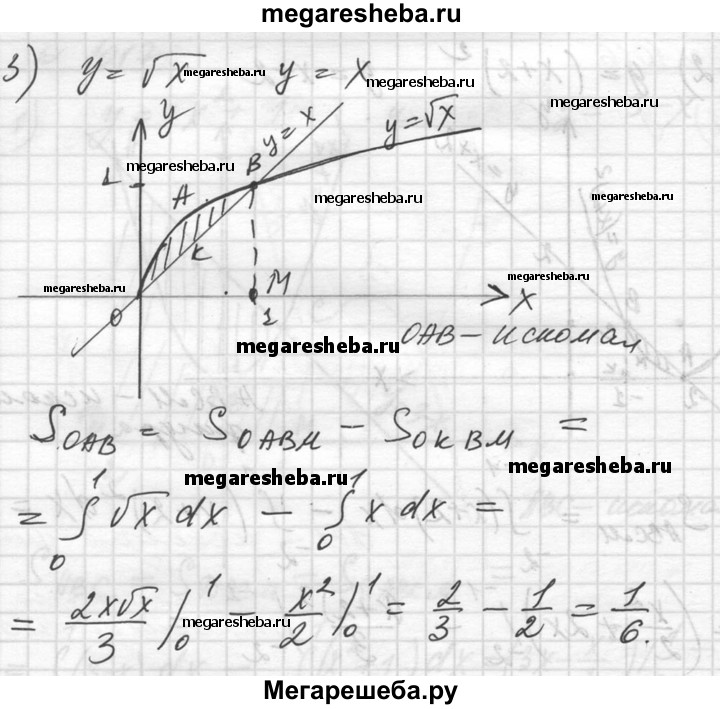 megaresheba.ru
3) y = √x megaresheba.ru y = x
megaresheba.ru
y y = x y = √x
megaresheba.ru
1 A B
megaresheba.ru
K
megaresheba.ru
megaresheba.ru M x
0 1
megaresheba.ru OAB – искомая
S OAB = S OABM – S OKBM =
megaresheba.ru megaresheba.ru
= ∫₀¹ √x dx – ∫₀¹ x dx =
= 2x√x/3 |₀¹ – x²/2 |₀¹ = 2/3 – 1/2 = 1/6.
megaresheba.ru
Мегарешеба.ру